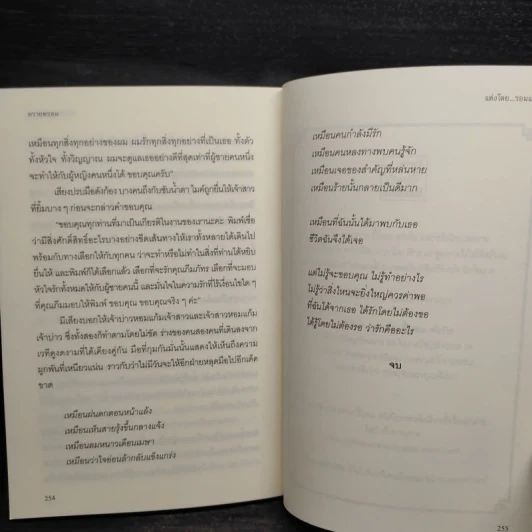 พรายพรหม
เหมือนทุกสิ่งทุกอย่างของผม ผมรักทุกสิ่งทุกอย่างที่เป็นเธอ ทั้งตัว
ทั้งหัวใจ ทั้งวิญญาณ ผมจะดูแลเธออย่างดีที่สุดเท่าที่ผู้ชายคนหนึ่ง
จะทำให้กับผู้หญิงคนหนึ่งได้ ขอบคุณครับ"
เสียงปรบมือดังก้อง บางคนถึงกับซับน้ำตา ไมค์ถูกยื่นให้เจ้าสาว
ที่ยิ้มบาง ๆ ก่อนจะกล่าวคำขอบคุณ
"ขอบคุณทุกท่านที่มาเป็นเกียรติในงานของเรานะคะ พิมพ์เชื่อ
ว่ามีสิ่งศักดิ์สิทธิ์อะไรบางอย่างขีดเส้นทางให้เราทั้งหลายได้เดินไป
พร้อมกับทางเลือกให้กับทุกคน ว่าจะทำหรือไม่ทำในสิ่งที่ท่านได้หยิบ
ยื่นให้ และพิมพ์ก็ได้เลือกแล้ว เลือกที่จะรักคุณภีมภัทร เลือกที่จะมอบ
หัวใจรักทั้งหมดให้กับผู้ชายคนนี้ และมั่นใจในความรักที่ไร้เงื่อนไขใด ๆ
ที่คุณภีมมอบให้พิมพ์ ขอบคุณ ขอบคุณจริง ๆ ค่ะ"
มีเสียงบอกให้เจ้าบ่าวหอมแก้มเจ้าสาวและเจ้าสาวหอมแก้ม
เจ้าบ่าว ซึ่งทั้งสองก็ทำตามโดยไม่ขัด ร่างของคนสองคนที่เดินลงจาก
เวทีดูงดงามที่ได้เคียงคู่กัน มือที่กุมกันมั่นนั้นแสดงให้เห็นถึงความ
ผูกพันที่เหนียวแน่น ราวกับว่าไม่มีวันจะให้อีกฝ่ายหลุดมือไปอีกเด็ด
ขาด
เหมือนฝนตกตอนหน้าแล้ง
เหมือนเห็นสายรุ้งขึ้นกลางแจ้ง
เหมือนลมหนาวเดือนเมษา
เหมือนว่าใจอ่อนล้ากลับแข็งแกร่ง
254
แต่งโดย...รอมแ
เหมือนคนกำลังมีรัก
เหมือนคนหลงทางพบคนรู้จัก
เหมือนเจอของสำคัญที่หล่นหาย
เหมือนร้ายนั้นกลายเป็นดีมาก
เหมือนที่ฉันนั้นได้มาพบกับเธอ
ชีวิตฉันจึงได้เจอ
แต่ไม่รู้จะขอบคุณ ไม่รู้ทำอย่างไร
ไม่รู้ว่าสิ่งไหนจะยิ่งใหญ่ควรค่าพอ
ที่ฉันได้จากเธอ ได้รักโดยไม่ต้องขอ
ได้รู้โดยไม่ต้องรอ ว่ารักคืออะไร
จบ
255